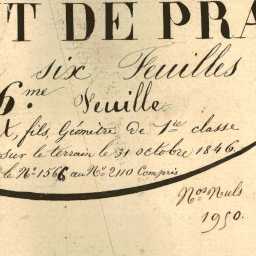 T DE PRA
six Feuilles
6.me Feuille
fils, Géomètre de 1re classe
sur le terrain le 31 octobre 1846.
le No 1566 au No 2110 Compris
Nos Nuls
1950.